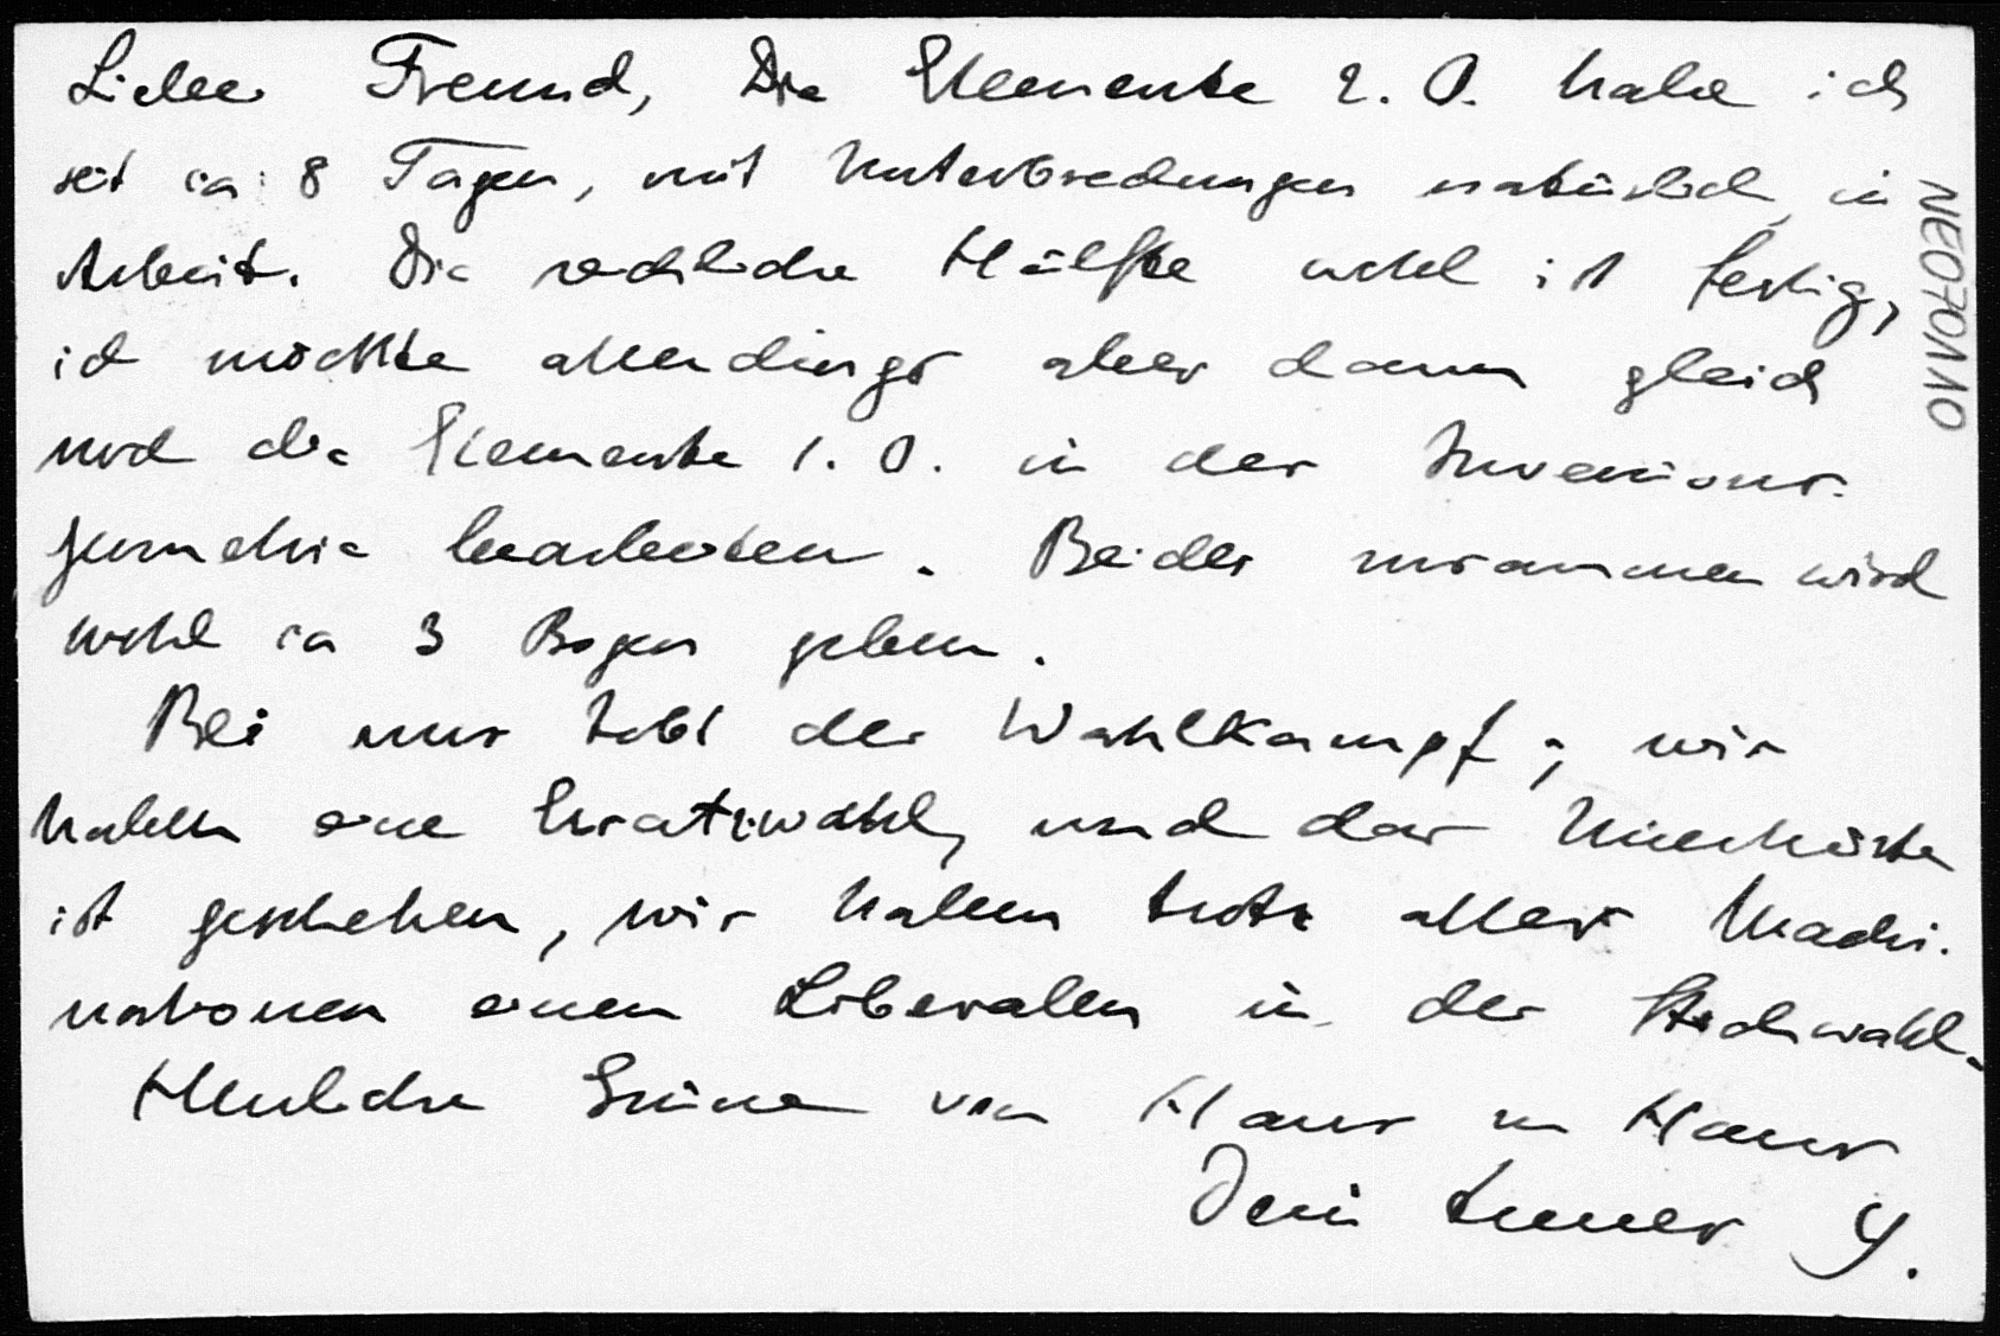 Lieber Freund, Die Elemente 2. O. habe ich
seit ca 8 Tagen, mit Unterbrechungen natürlich, in
Arbeit. Die reichliche Hälfte wohl ist fertig,
ich möchte allerdings aber dann gleich
noch die Elemente 1. O. in der Inversions-
geometrie bearbeiten. Beides zusammen wird
wohl ca 3 Bogen geben.
Bei uns tobt der Wahlkampf; wir
haben eine Ersatzwahl, und das Unerhörte
ist geschehen, wir haben trotz aller Machi-
nationen einen Liberalen in der Stichwahl.
Herzliche Grüsse von Haus zu Haus
Dein treuer
NEO70A10